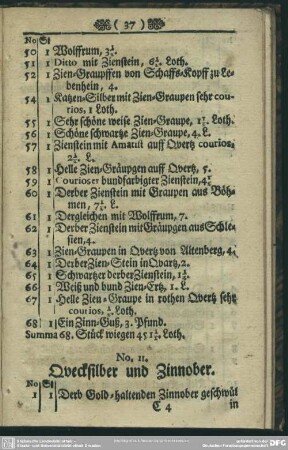 ( 37 )
No St
50 1 Wolffrum, 3¼.
51 1 Ditto mit Zienstein, 6¼. Loth.
52 1 Zien-Graupffen von Schaffs-Kopff zu Le-
benhein, 4.
54 1 Katzen-Silber mit Zien-Graupen sehr cou-
rios, 1 Loth.
55 1 Sehr schöne weise Zien-Graupe, Loth.
56 1 Schöne schwartze Zien-Graupe, 4. L.
57 1 Zienstein mit auff Qvertz courios,
L.
58 1 Helle Zien-Gräupgen auff Qvertz, 5.
59 1 Courioser bundfarbigter Zienstein,
60 1 Derber Zienstein mit Graupen aus Böh-
men, L.
61 1 Dergleichen mit Wolffrum, 7.
62 1 Derber Zienstein mit Gräupgen aus Schle-
sien, 4.
63 1 Zien-Graupen in Qvertz von Altenberg,
64 1 Derber Zien-Stein in Qvartz, 2.
65 1 Schwartzer derber Zienstein,
66 1 Weiß und bund Zien-Ertz, 1. L.
67 1 Helle Zien-Graupe in rothen Qvertz sehr
courios, Loth.
68 1 Ein Zinn-Guß, 3. Pfund.
Summa 68. Stück wiegen Loth.
No. 11.
Qvecksilber und Zinnober.
No St
1 1 Derb Gold-haltenden Zinnober geschwül
C 4 in